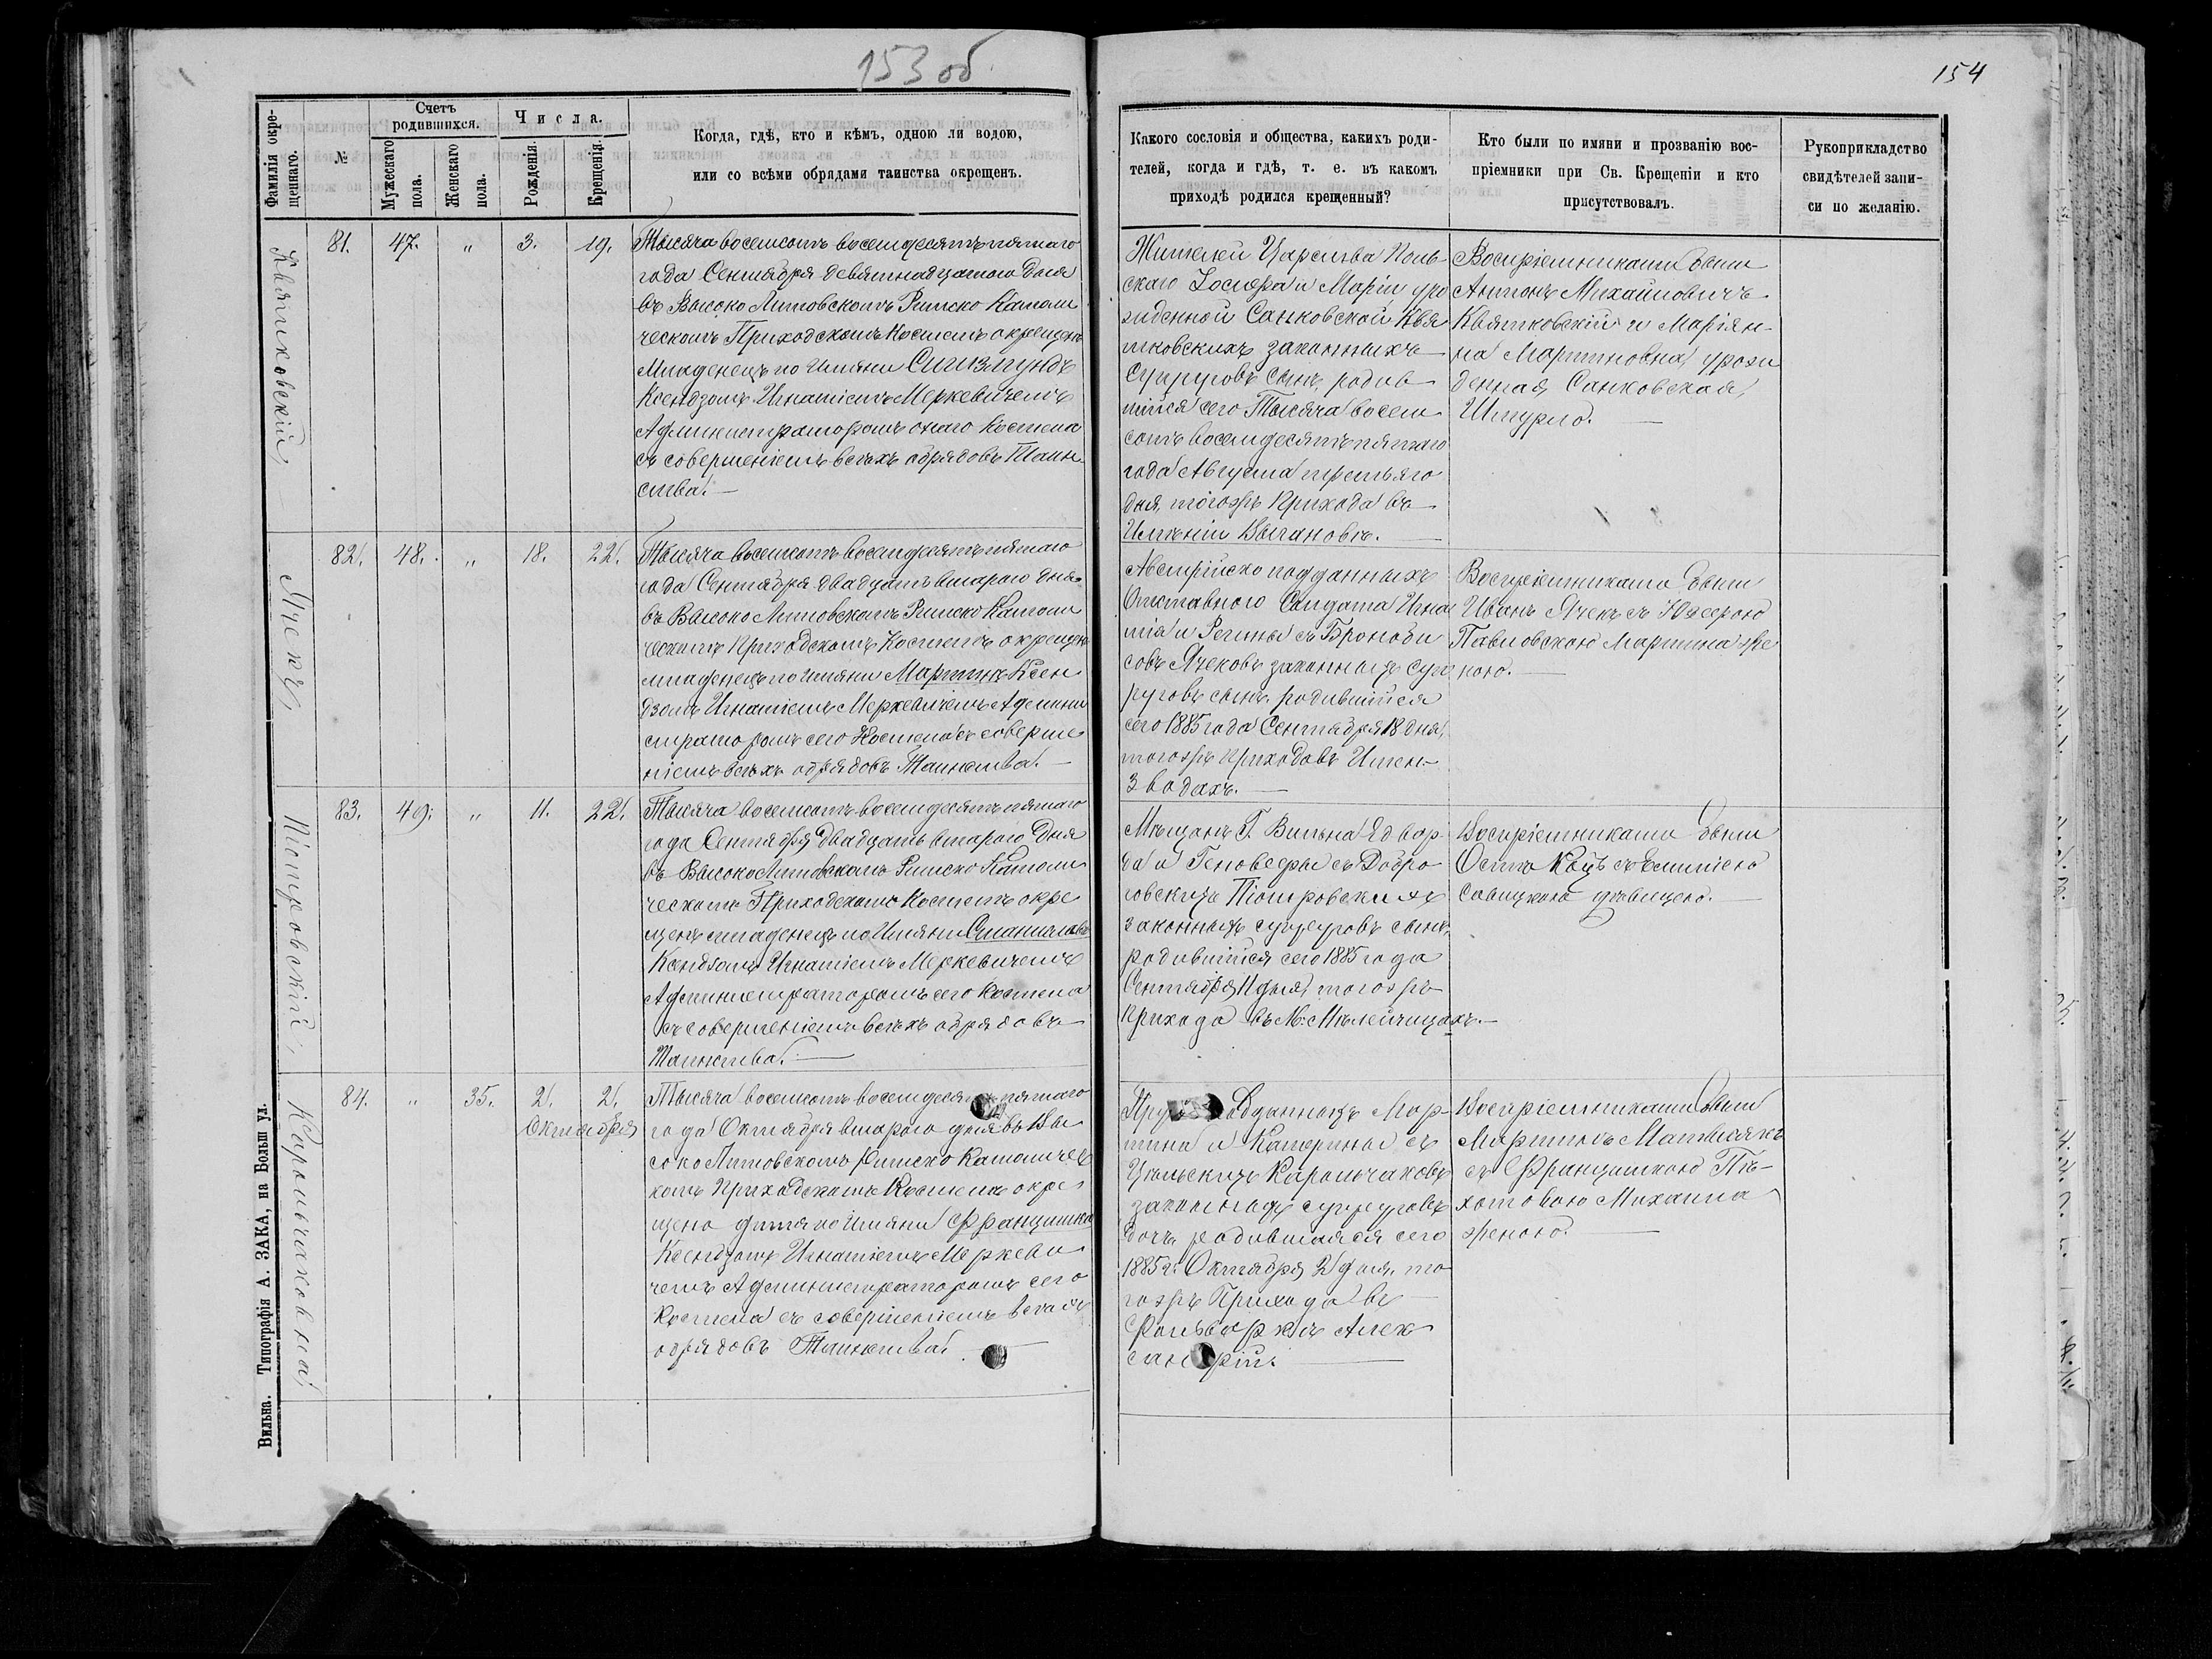 153 об.
154
Фамилія окре-
щеннаго.
№
Счетъ
родившихся.
Мужескаго
пола.
Женскаго
пола.
Числа.
Рожденія.
Крещенія.
Когда, гдѣ, кто и кѣмъ, одною ли водою,
или со всѣми обрядами таинства окрещенъ.
Какого сословія и общества, какихъ роди-
телей, когда и гдѣ, т. е. въ какомъ
приходѣ родился крещенный?
Кто были по имяни и прозванію вос-
пріемники при Св. Крещеніи и кто
присутствовалъ.
Рукоприкладство
свидѣтелей запи-
си по желанію.
Квятковскій
81. 47. " 3. 19.
Тысяча восемсотъ восемдесятъ пятаго
года Сентября девятнадцатого дня
въ Высоко Литовскомъ Римско Катали
ческомъ Приходскомъ Костелѣ окрещенъ
Младенецъ по Имяни Сигизмундъ
Ксендзомъ Игнатіемъ Меркевичемъ
Администраторомъ онаго Костела
съ совершеніемъ всѣхъ обрядовъ Таин-
ства. —
Жителей Царства Поль-
скаго Іосифа и Маріи уро
жденной Санковской Квя
тковскихъ законныхъ
Супруговъ сынъ родив
шійся сего Тысяча восем
сотъ восемдесятъ пятаго
года Августа третьяго
дня, тогожъ Прихода въ
Имѣніи Вычановѣ. —
Воспріемниками были
Антонъ Михайловичъ
Квятковскій и Маріян-
на Мартиновна урож
денная Санковская
Шпурло. —
Ячекъ
82. 48. " 18. 22.
Тысяча восемсотъ восемдесятъ пятаго
года Сентября двадцать втараго дня
въ Высоко Литовскомъ Римско Катали
ческомъ Приходскомъ Костелѣ окрещенъ
младенецъ по имяни Мартинъ Ксен
дзомъ Игнатіемъ Меркевичемъ Админи
страторомъ сего Костела съ соверше
ніемъ всѣхъ обрядовъ Таинства. —
Австрійско подданныхъ
Отставного Солдата Игна
тія и Регины съ
совъ Ячековъ законныхъ суп
руговъ сынъ родившійся
сего 1885 года Сентября 18 дня,
тогожъ Прихода въ Имен.
Зводахъ. —
Воспріемниками были
Иванъ Ячекъ съ Юзефою
Павловскою Мартина же
ною. —
Піотровскій
83. 49. " 11. 22.
Тысяча восемсотъ восемдесятъ пятаго
года Сентября двадцать втораго дня
въ Высоко Литовскомъ Римско Катали
ческомъ Приходскомъ Костелѣ окре
щенъ младенецъ по Имяни Станиславъ
Ксендзомъ Игнатіемъ Меркевичемъ
Администраторомъ сего Костела
съ совершеніемъ всѣхъ обрядовъ
Таинства. —
Мѣщанъ Г. Вильна Эдвар-
да и Геновефы съ Добро
говскихъ Піотровскихъ
законныхъ супруговъ сынъ,
родившійся сего 1885 года
Сентября 11 дня, тогожъ
Прихода въ М: Милейчицахъ. —
Воспріемниками были
Осипъ Коцъ съ Емиліею
Савицкою дѣвицею. —
Карольчаковна
84. " 35. 2. 2.
Октября
Тысяча восемсотъ восемдеся пятаго
года Октября втораго дня въ Вы
соко Литовскомъ Римско Каталичес
комъ Приходскомъ Костелѣ окре
щено дитя по Имяни Францишка
Ксендзомъ Игнатіемъ Меркеви
чемъ Администраторомъ сего
Костела съ совершеніемъ всѣхъ
обрядовъ Таинства. —
Пру подданныхъ Мар-
тина и Катерины съ
Карольчаковъ
законныхъ супруговъ
дочь родившаяся сего
1885 г. Октября 2 дня, то
гожъ Прихода въ
Фольваркѣ Алек
сандріи. —
Воспріемниками были
Мартинъ Матысякъ
съ Францишкою Пѣ-
хотовою Михаила
женою. —
Вильна. Типографія А. ЗАКА, на Больш ул.